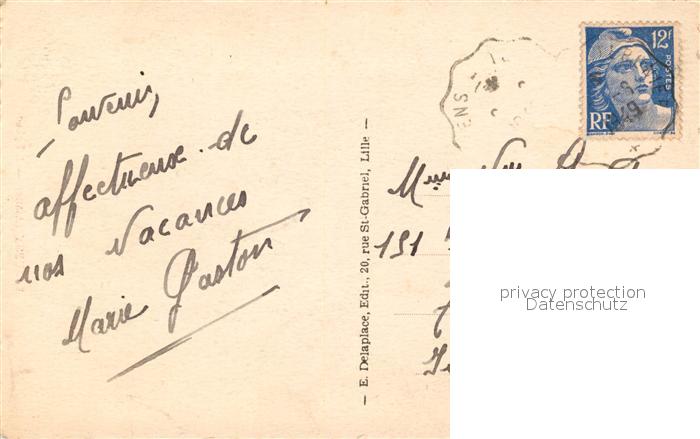 Souvenir
affectueux de
nos vacances
Marie Gaston
— E. Delaplace, Edit., 20, rue St-Gabriel, Lille —
12F
POSTES
RF
ENS
49
Mme
151
privacy protection
Datenschutz